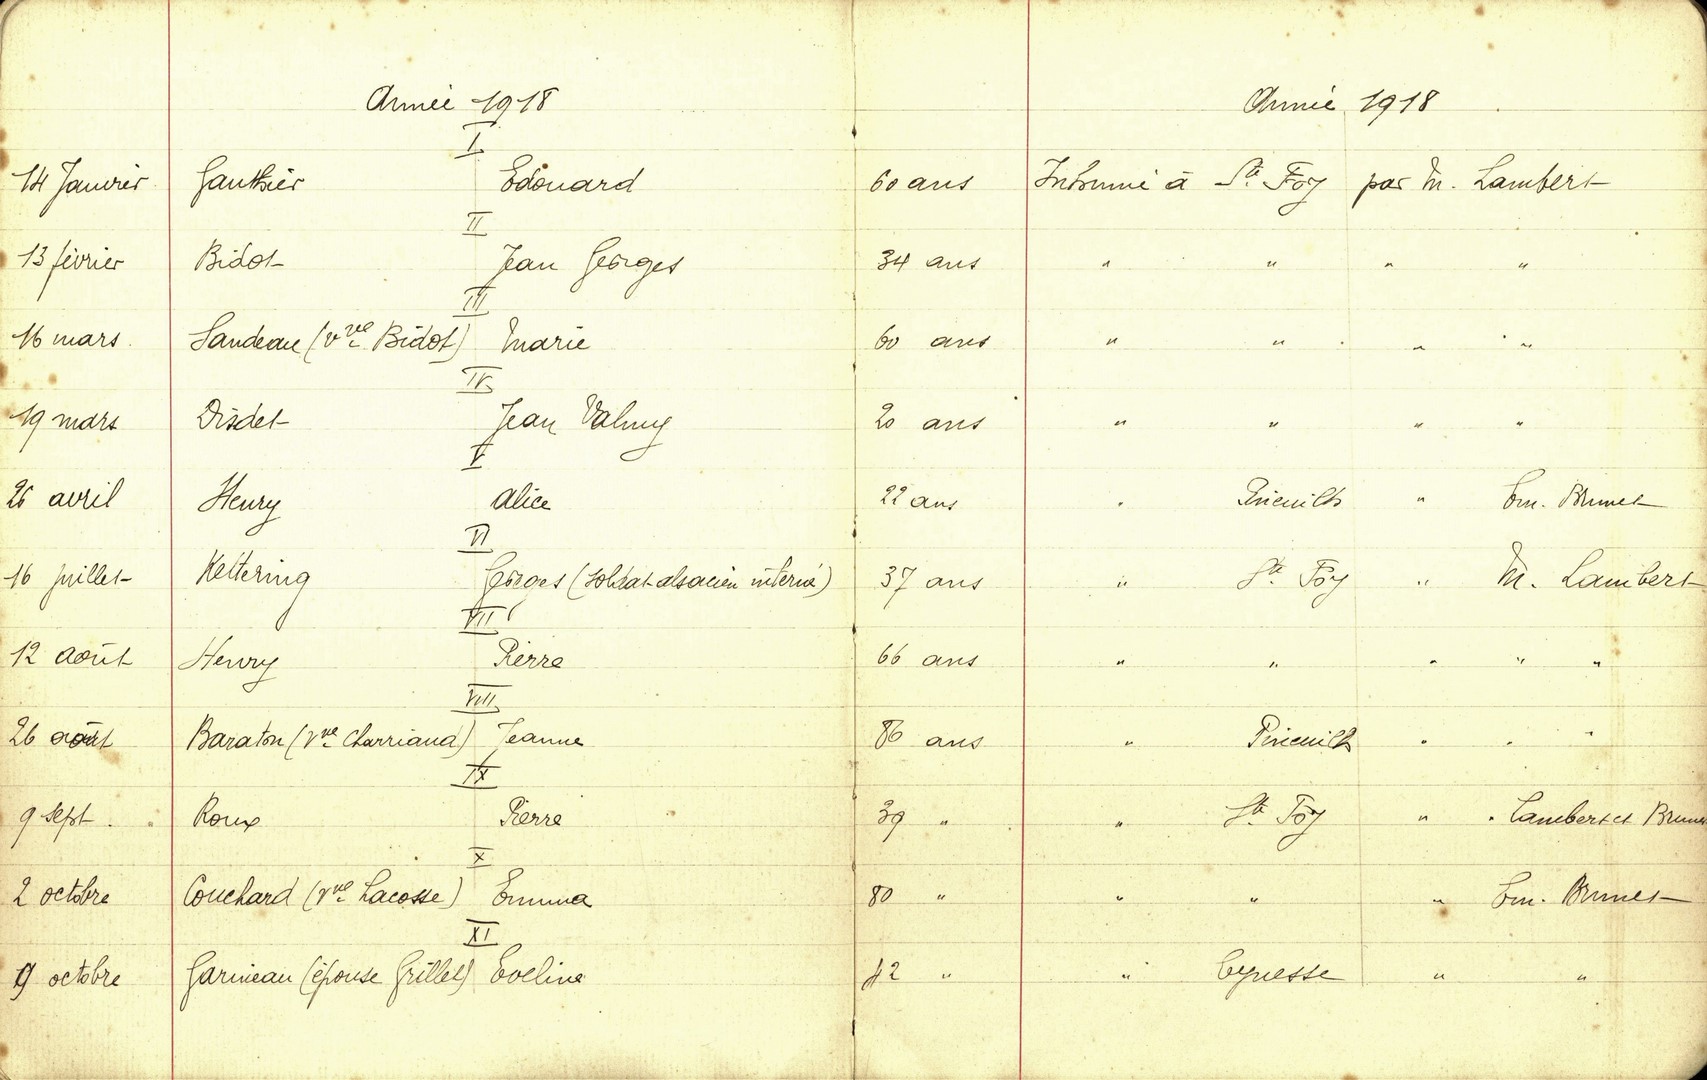 Année 1918 Année 1918
I
14 Janvier Gauthier Edouard 60 ans Inhumé à Ste Foy par M. Lambert
II
13 février Bidot Jean Georges 34 ans " " " "
III
16 mars Sandeau (vve Bidot) Marie 60 ans " " " "
IV
19 mars Disdet Jean Valmy 20 ans " " " "
V
26 avril Henry Alice 22 ans " Pineuilh " Em. Brunet
VI
16 juillet Keltering Georges (soldat alsacien interné) 37 ans " Ste Foy " M. Lambert
VII
12 août Henry Pierre 66 ans " " " " "
VIII
26 août Baraton (vve Charriaud) Jeanne 86 ans " Pineuilh " " "
IX
9 sept. Roux Pierre 39 " " Ste Foy " " Lambert et Brunet
X
2 octobre Couchard (vve Lacosse) Emma 80 " " " " Em. Brunet
XI
9 octobre Garineau (épouse Grillet) Eveline 42 " " Eynesse " "